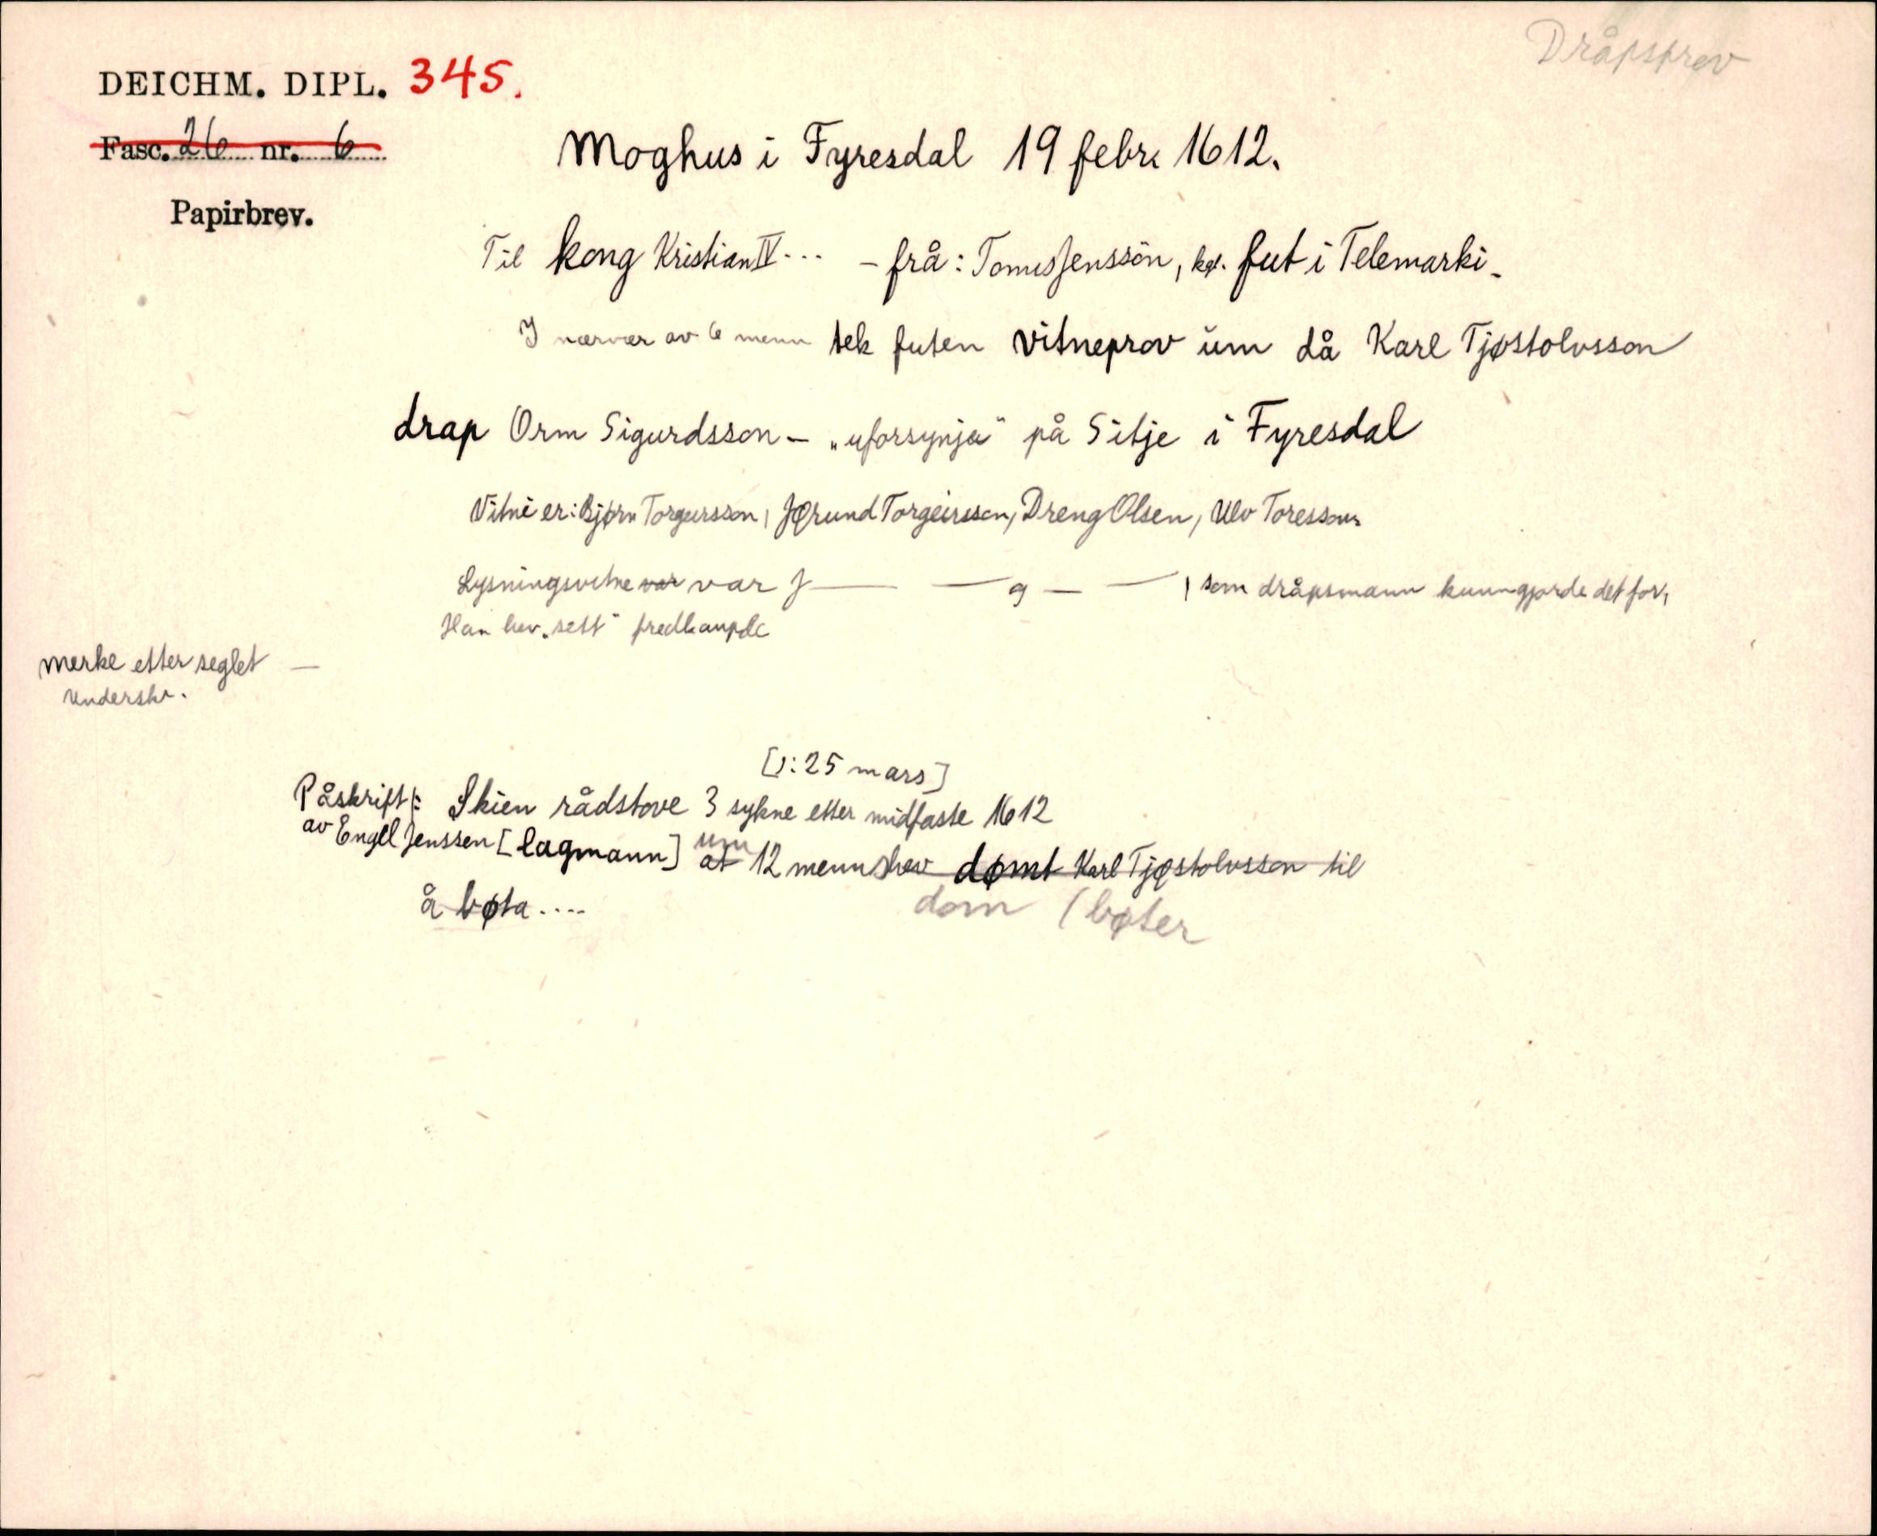 Dråpsprov
DEICHM. DIPL. 345.
Fasc. 26 nr. 6
Papirbrev.
Moghus i Fyresdal 19 febr. 1612.
Til kong Kristian IV... - frå: Tomes Jenssön, kgl. fut i Telemarki.
I nærvær av 6 menn tek futen vitneprov um då Karl Tjøstolvsson
drap Orm Sigurdsson - „uforsynja" på Sitje i Fyresdal
Vitne er: Bjørn Torgeirsson, Jørund Torgeirsson, Dreng Olsen, Ulv Toresson.
Lysningsvitne var var J — — g — — , som dråpsmann kunngjorde det for,
Han hev „sett" fredkaup
merke etter seglet —
Underskr.
[ɔ: 25 mars]
Påskrift: Skien rådstove 3 sykne etter midfaste 1612
av Engel Jenssen [lagmann] at um 12 menn hev dømt Karl Tjøstolvsson til
å bøta .... dom / bøter